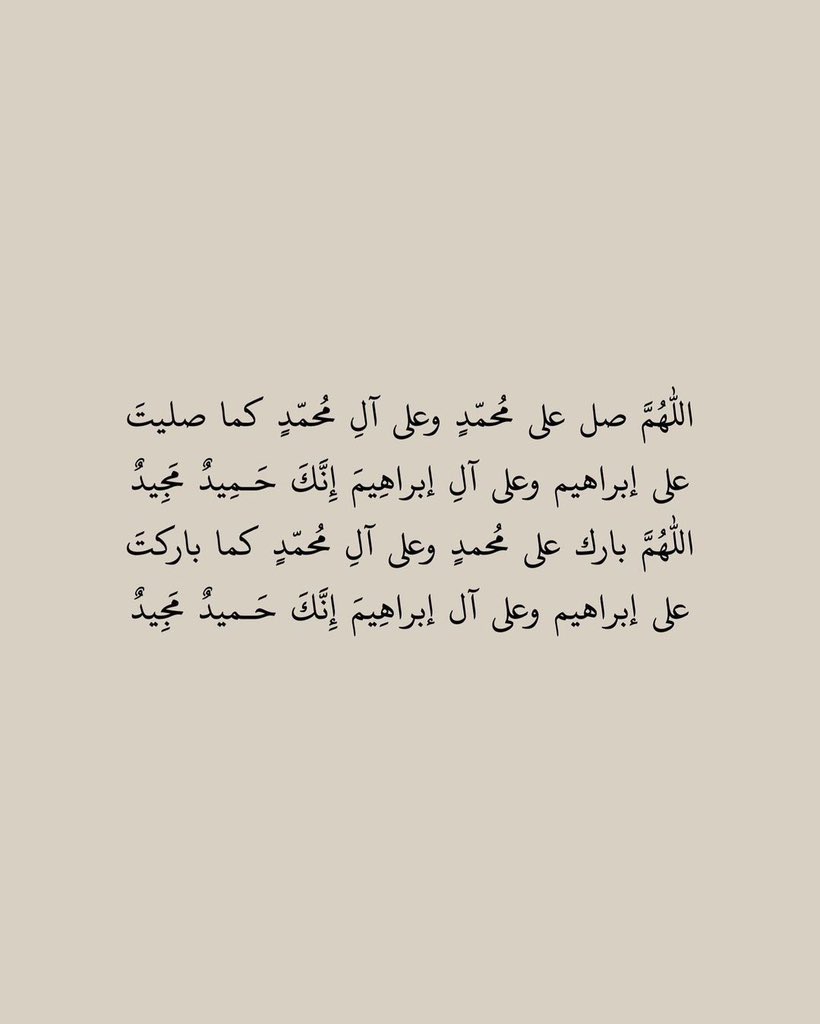 اللّٰهُمَّ صل على مُحمّدٍ وعلى آلِ مُحمّدٍ كما صليتَ
على إبراهيم وعلى آلِ إبراهِيمَ إِنَّكَ حَـمِيدٌ مَجِيدٌ
اللّٰهُمَّ بارك على مُحمدٍ وعلى آلِ مُحمّدٍ كما باركتَ
على إبراهيم وعلى آل إبراهِيمَ إِنَّكَ حَـميدٌ مَجِيدٌ